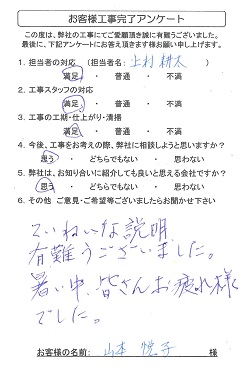 お客様工事完了アンケート
この度は、弊社の工事にてご愛顧頂き誠に有難うございました。
最後に、下記アンケートにお答え頂きます様お願い申し上げます。
1. 担当者の対応 (担当者名: 上村 耕太 )
満足 ・ 普通 ・ 不満
2. 工事スタッフの対応
満足 ・ 普通 ・ 不満
3. 工事の工期・仕上がり・清掃
満足 ・ 普通 ・ 不満
4. 今後、工事をお考えの際、弊社に相談しようと思いますか?
思う ・ どちらでもない ・ 思わない
5. 弊社は、お知り合いに紹介しても良いと思える会社ですか?
思う ・ どちらでもない ・ 思わない
6. その他 ご意見・ご希望等ございましたらお聞かせ下さい
ていねいな説明
有難うございました。
暑い中、皆さんお疲れ様
でした。
お客様の名前: 山本 悦子 様